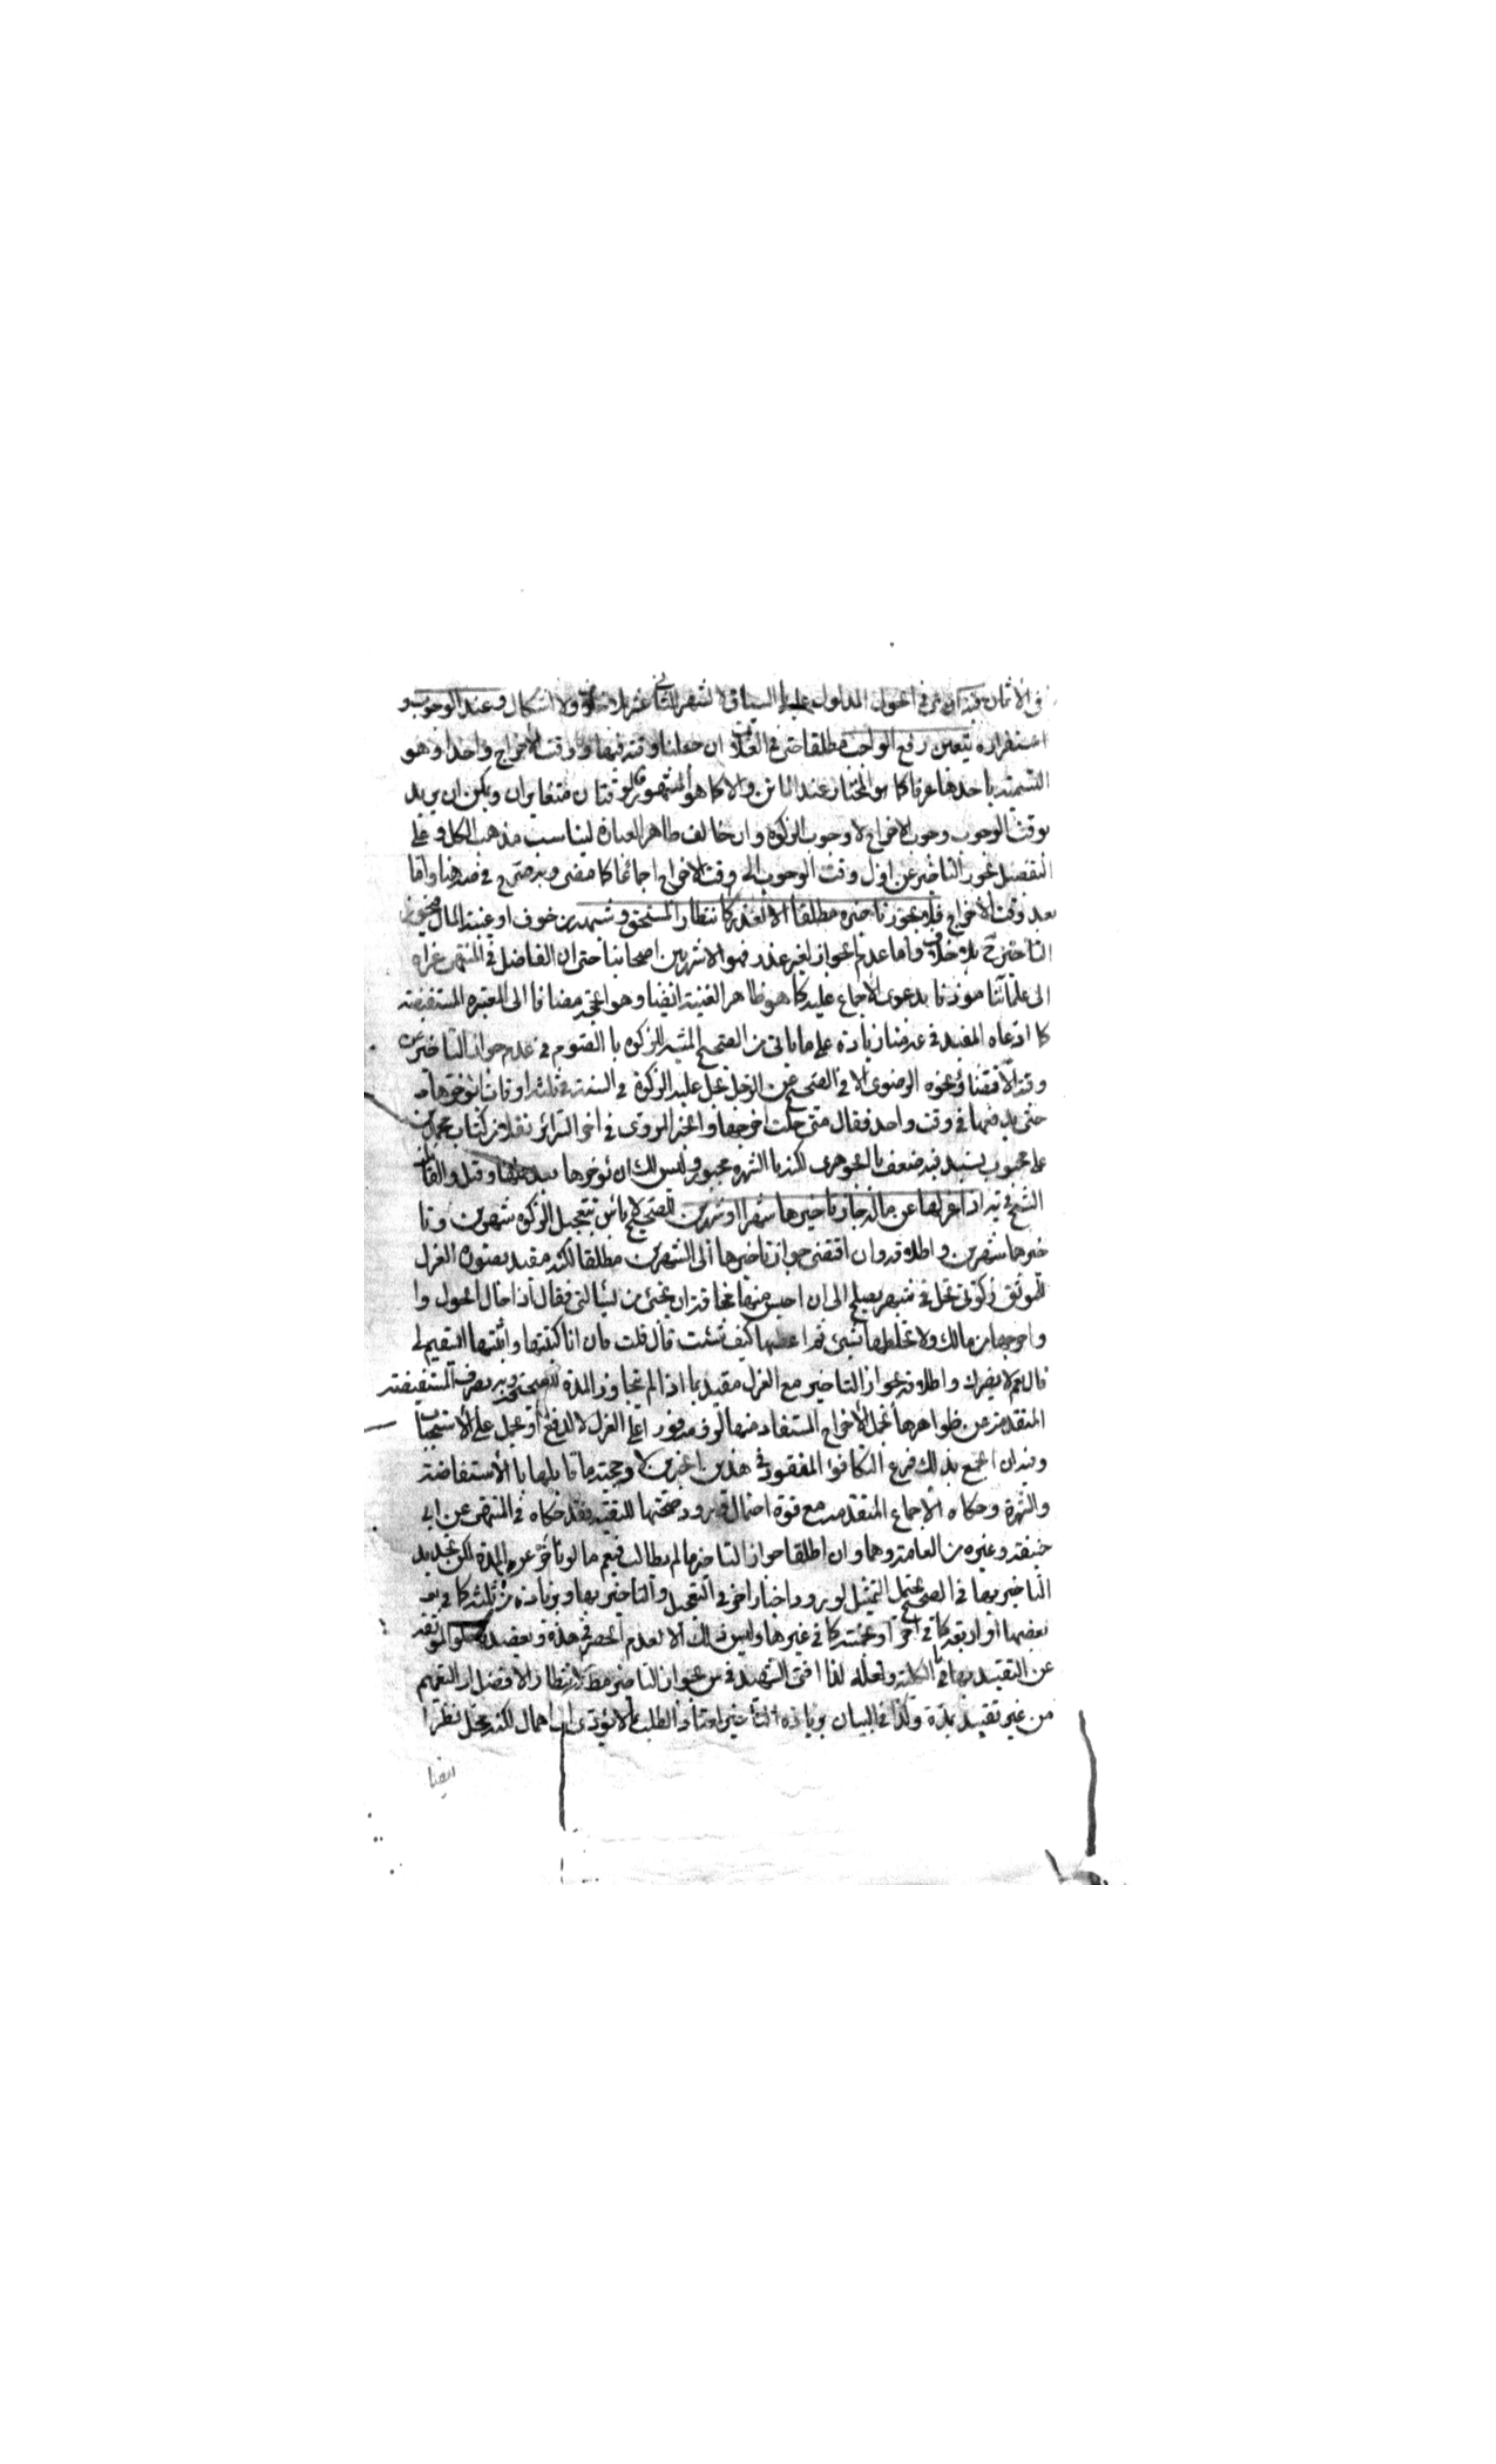 في الأثمان فيه ان مر في الحول المداول عليه السياق لا لشهر الثاني عشر بلا خلاف ولا اشكال وعند الوجوب و
استقراره يتعين دفع الواجب مطلقا حتى في الغلات ان جعلنا وقته فيها ووقت الاخراج واحدا وهو
التسمية باحدها عرفا كما هو المختار عند الماتن والا كما هو المشهور فالوقتان متغايران ويمكن ان يريد
بوقت الوجوب وجوب الاخراج لا وجوب الزكوة وان خالف ظاهر العبارة ليناسب مذهب الكل وعلى
التفصيل يجوز التاخير عن اول وقت الوجوب الى وقت الاخراج اجماعا كما مضى وبه صرح في هنا واما
بعد وقت الاخراج فلا يجوز تاخيره مطلقا الا لعذر كانتظار المستحق وشبهه من خوف او غيبة المال فيجوز
التاخير ح بلا خلاف واما عدم الجواز لغير عذر فهو الاشهر بين اصحابنا حتى ان الفاضل في المنتهى عزاه
الى علمائنا موذنا بدعوى الاجماع عليه كما هو ظاهر الغنية ايضا وهو الحجة مضافا الى المعتبره المستفيضة
كما ادعاه المفيد في زيادة على ما ياتى من الصحيح المشبه الزكوة بالصلوم في عدم جواز التاخير عن
وقته الا قضاء ونحوه الرضوى الا في الصحيح عن الرجل تحل عليه الزكوة في السنة في ثلثة اوقات ايؤخرها
حتى يدفعها في وقت واحد فقال متى حلت اخرجها والخبر المروى في اخر السرائر نقلا من كتاب محمد بن
على محبوب بسند فيه ضعف بالجوهرى لكنه بالشهره مجبور وليس لك ان تؤخرها بعد حلها وقيل والقائل
الشيخ في يه اذا عزلها عن ماله جاز تاخيرها شهرا او شهرين للصحيح لا باس بتعجيل الزكوة شهرين وتا
خيرها شهرين واطلاقه وان اقتضى جواز تاخيرها الى الشهرين مطلقا لكنه مقيد بصورة العزل
للموثق زكوتى تحل في شهر يصلح الى ان احبس منها مخافة ان يجئ من يسالنى فقال اذا حال الحول وا
واخرجها من مالك ولا تخلطها بشئ ثم اعطها كيف شئت قال قلت فان انا كتبتها واثبتها ايستقيم لي
قال نعم لا يضرك واطلاقه بجواز التاخير مع العزل مقيد بما اذا لم يتجاوز المدة للصحيحة وبه يصرف المستفيضة
المتقدمة عن ظواهرها بحمل الاخراج المستفاد منها لزومه فورا على العزل لا الدفع او تحمل على الاستحباب
وفيه ان الجمع بذلك فرع التكافؤ المفقود في هذين الخبرين لا وحجية ما قابلها بالاستفاضة
والشهرة وحكاه الاجماع المتقدمة مع قوة احتمال ورود صحتها للتقية فقد حكاه في المنتهى عن ابى
حنيفة وغيره من العامة وهما وان اطلقا جواز التاخير ما لم يطالب فيعم ما لو تاخر عن المدة لكن تحديد
التاخير بها في الصحيح يحتمل التمثيل لورود اخبار اخر في التعجيل والتاخير بها وبزيادة من ثلثة كما في
بعضها او اربعة كما في اخر او خمسة كما في غيرها وليس ذلك الا لعدم الحصر في هذه ويعضده خلو الموثقة
عن التقييد بها بالكلية ولعله لذا افتى الشهيد في س بجواز التاخير مط لانتظار الافضل او التعميم
من غير تقييد بمدة وكذا في البيان وزيادة التاخير لمعتاد الطلب بما لا يؤدى الى اهمال لكنه محل نظر ا
ايضا